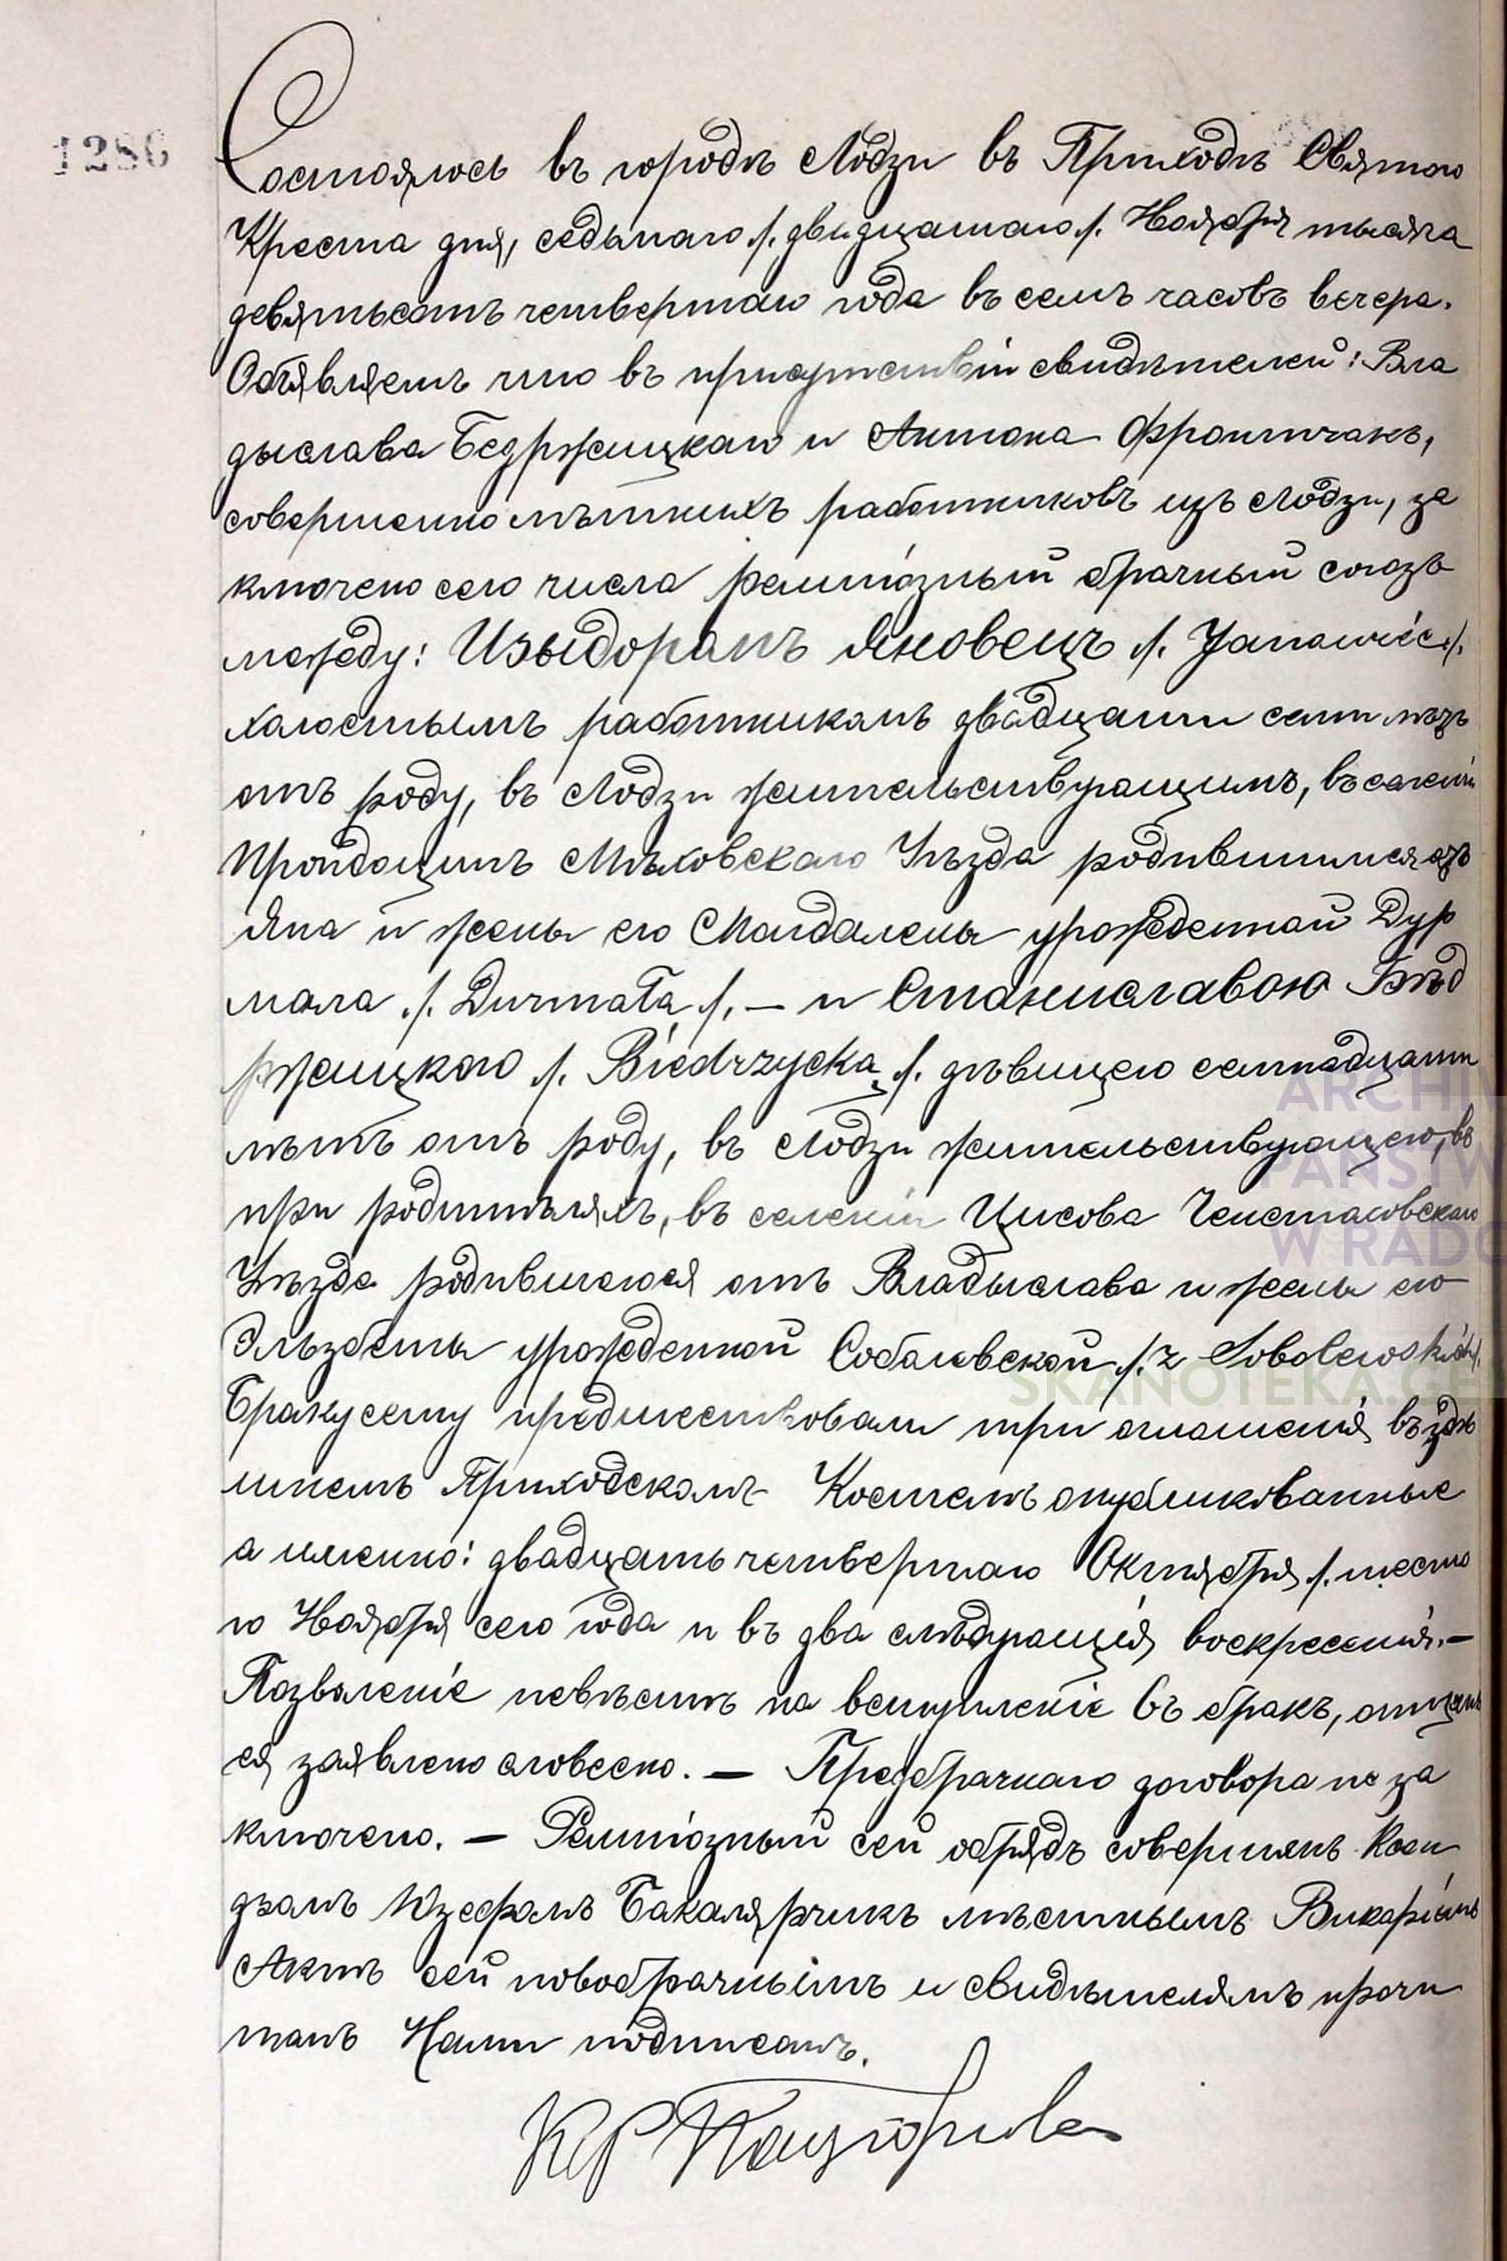 1286
Состоялось въ городѣ Лодзи въ Приходѣ Святаго
Креста дня, седьмаго /. двадцатаго /. Ноября тысяча
девятьсотъ четвертаго года въ семь часовъ вечера.
Объявляемъ что въ присутствіи свидѣтелей: Вла
дыслава Бедржицкаго и Антона Фронтчакъ,
совершеннолѣтнихъ работниковъ изъ Лодзи, за
ключено сего числа религіозный брачный союзъ
между: Изыдоромъ Яновецъ /. Janowiec /.
холостымъ работникомъ двадцати семи лѣтъ
отъ роду, въ Лодзи жительствующимъ, въ селеніи
Мѣховскаго Уѣзда родившимся отъ
Яна и жены его Магдалены урожденной Дур
мала ./. Durmała /. — и Станиславою Бѣд
ржицкою /. Biedrzycką /. дѣвицею семнадцати
лѣтъ отъ роду, въ Лодзи жительствующею, въ
при родителяхъ, въ селеніи Цисова Ченстоховскаго
Уѣзда родившеюся отъ Владыслава и жены его
Эльзбеты урожденной Соболевской /. z Sobolewskich /.
Браку сему предшествовали три оглашенія въ здѣ
шнемъ Приходскомъ Костелѣ опубликованные
а именно: двадцать четвертаго Октября /. шесто
го Ноября сего года и въ два слѣдующія воскресенія. —
Позволеніе невѣстѣ на вступленіе въ бракъ, отцемъ
ея заявлено словесно. — Предбрачнаго договора не за
ключено. — Религіозный сей обрядъ совершенъ Ксен
дзомъ Юзефомъ Бакалярчикъ мѣстнымъ Викаріемъ
Актъ сей новобрачнымъ и свидѣтелямъ прочи
танъ Нами подписанъ.
SKANOTEKA.GE